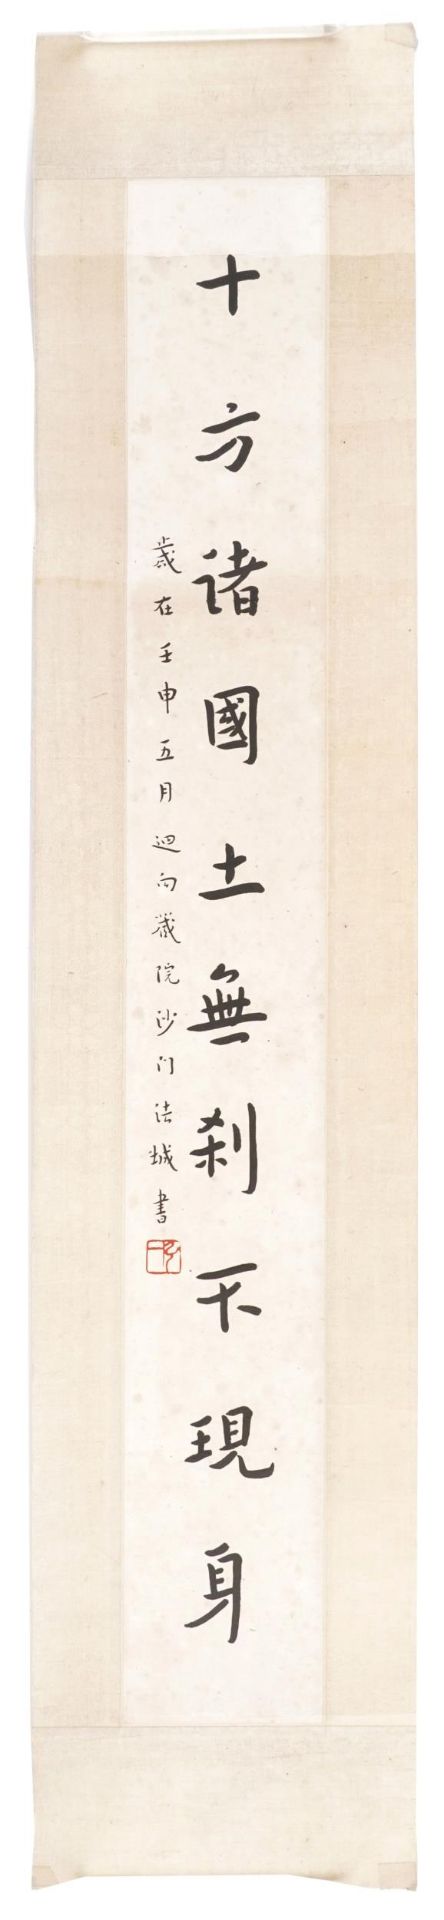 十方諸國土無刹不現身
歲在壬申五月迴向藏院沙门法城書